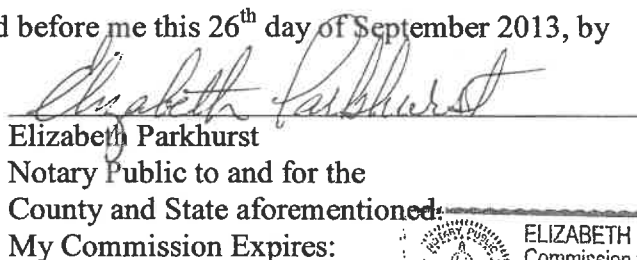 d before me this 26th day of September 2013, by
Elizabeth Parkhurst
Elizabeth Parkhurst
Notary Public to and for the
County and State aforementioned:
My Commission Expires:
NOTARY PUBLIC
ELIZABETH
Commission